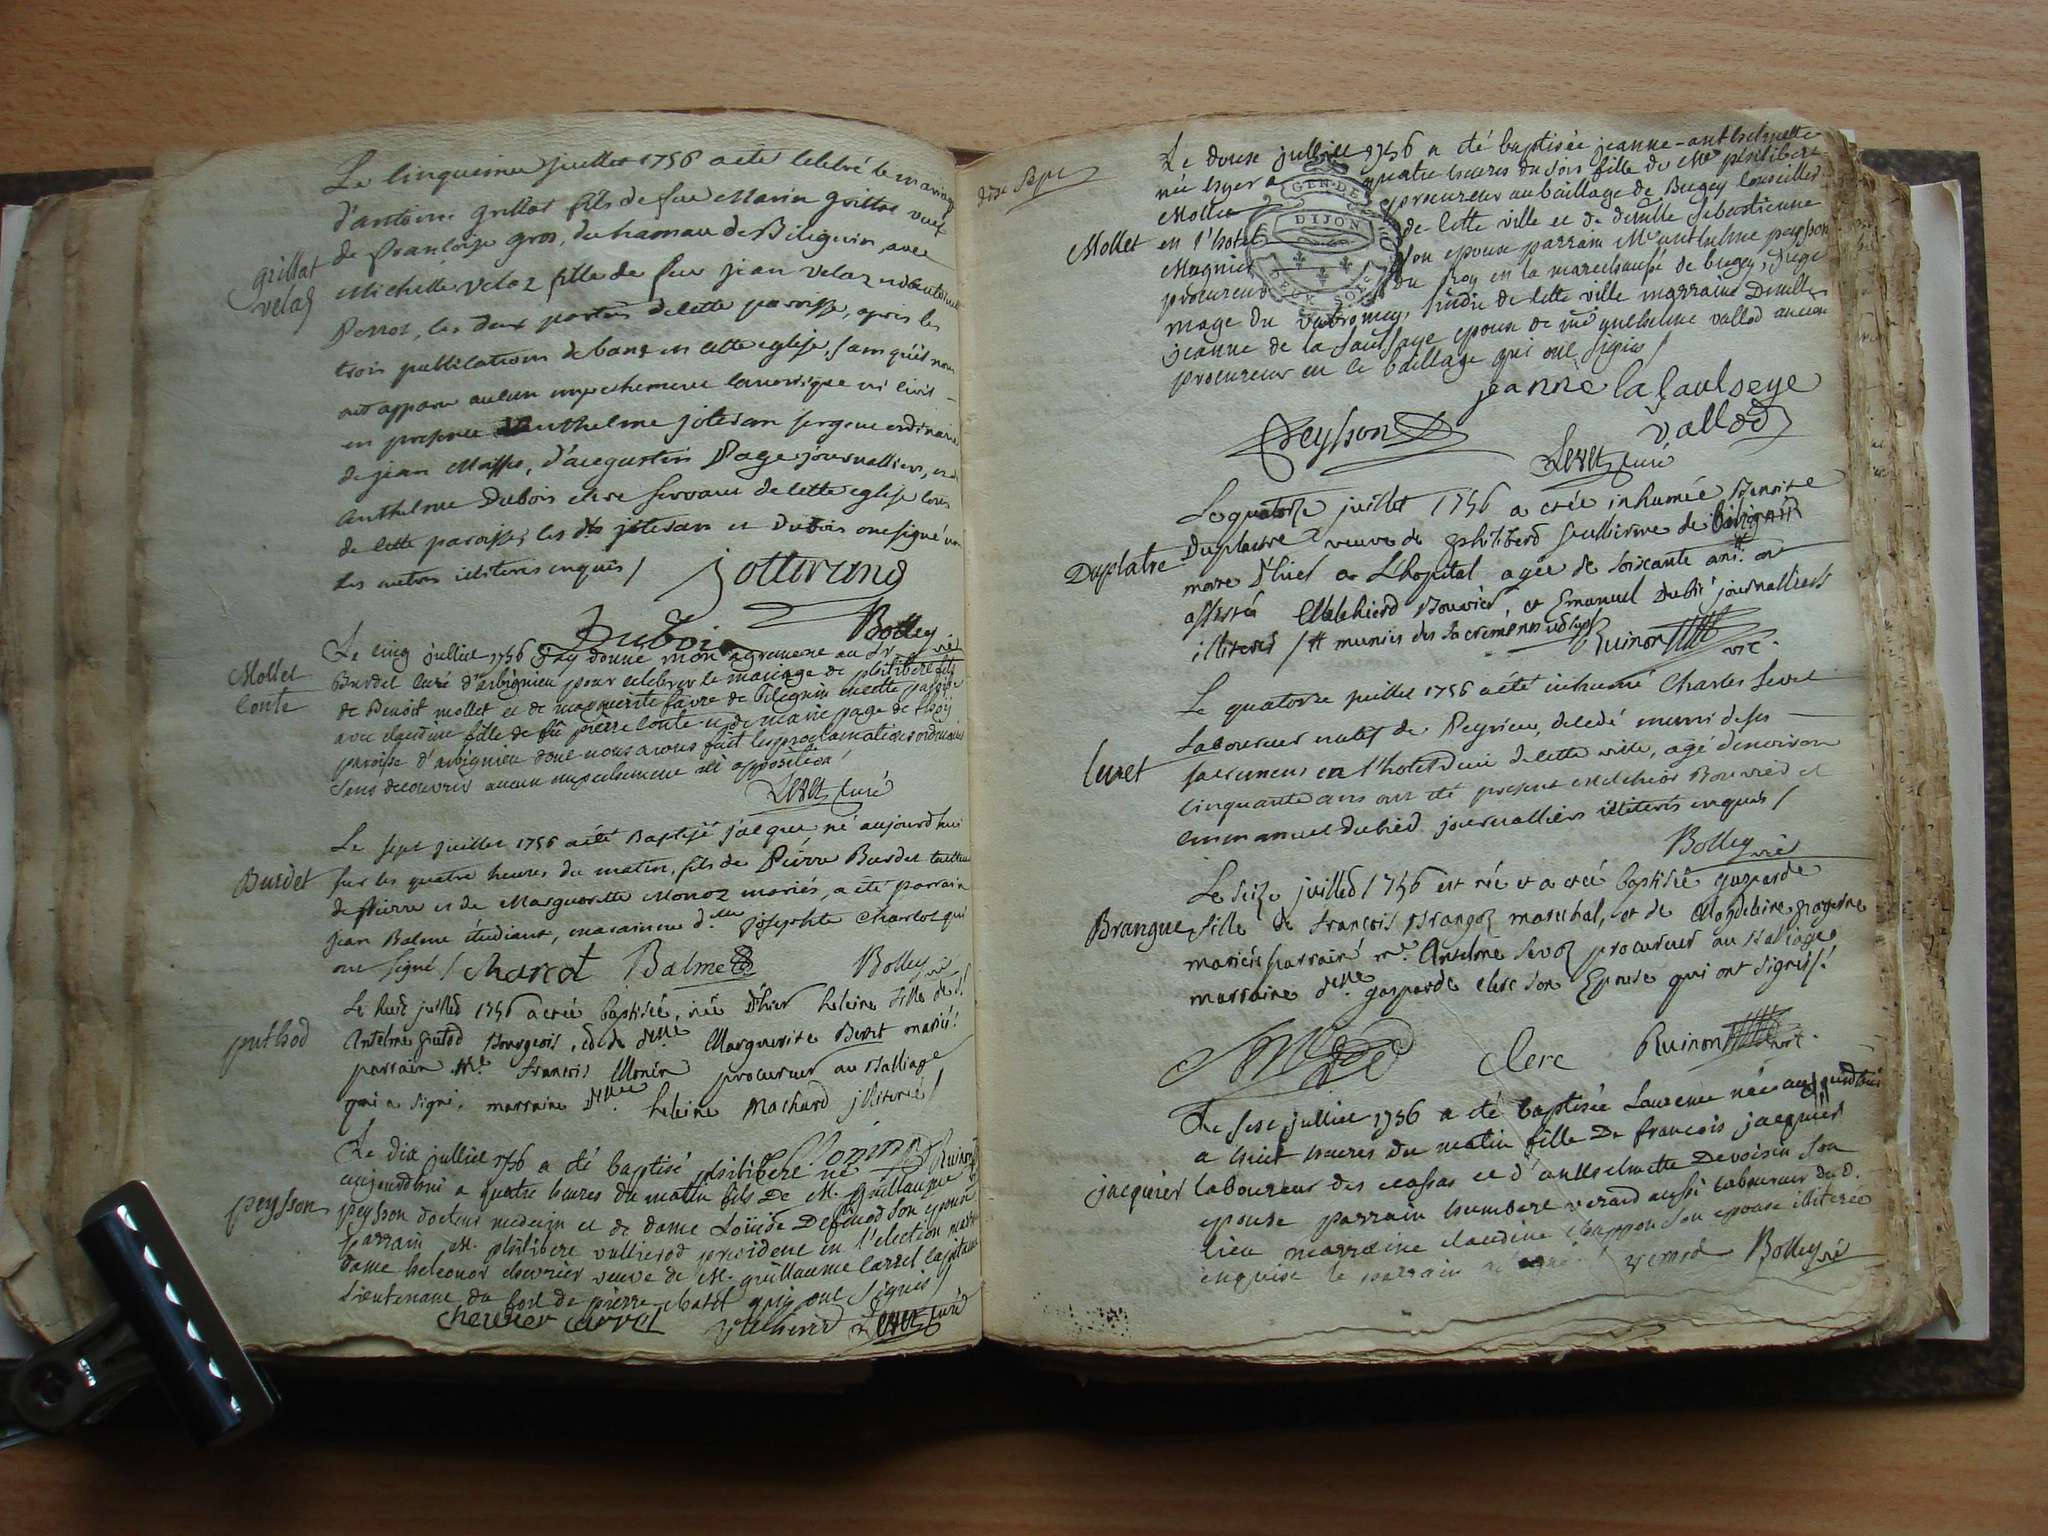 Le cinquieme juillet 1756 a été celebré le mariage
d'antoine grillat fils de feu Marin grillat veuf
de françoise gros, du hameau de Biliguin, avec
grillat
velaz
Michelle Velaz fille de feu jean Velaz
Perrot, les deux parties de cette paroisse, apres les
trois publications de bans en cette eglise, sans qu'il nous
ait apparu aucun empechement canonique ni civil
en presence d'anthelme joteran sergent ordinaire
de jean Maffe, d'augustin Page journallier, et d'
anthelme Dubois clerc servant de cette eglise tous
de cette paroisse, les dts joteran et Dubois ont signé non
les autres illiteres enquis /
jotterand
Dubois
Bolley vic
Mollet
Conte
Le cinq julliet 1756 j'ay donné mon agrement au Sr
Burdet curé d'arbignieu pour celebrer le mariage de philibert fils
de Benoit mollet et de marguerite favre de bilegnin en cette paroisse
avec claudine fille de fû pierre conte et de marie page de
paroisse d'arbignieu dont nous avons fait les proclamations ordinaires
sans decouvrir aucun empechement ni opposition /
Levet curé
Le sept juillet 1756 a été Baptisé jacque né aujourd'hui
Burdet
sur les quatre heures du matin, fils de Pierre Burdet tailleur
de Pierre et de Marguerite Monoz mariés, a été parrain
jean Balme étudiant, maraine dlle josephte charcot qui
ont signé / charcot Balme
Bolley vic
Le huit juillet 1756 a été baptisée, née d'hier heleine fille de Sr
puthod
Antelme putod Bourgeois, et de delle Marguerite Bevet mariés.
parrain Me francois Monin procureur au Balliage
qui a signé. marraine Delle heleine Machard illiterée /
Monin
Ruinon
Le dix julliet 1756 a été baptisé philibert né
aujourdhui a quatre heures du matin fils De M. Guillaume
peysson
peysson docteur medecin et de dame Loüise Defiuod son epouse
parrain M. philibert vullierod president en l'election marraine
dame heleonor chevrier veuve de M. guillaume carrel capitaine
Lieutenant du fort de pierre chatel qui ont signés /
chevrier carrel
Vullierod
Levet curé
Le douse julliet 1756 a été baptisée jeanne-anthelmette
née hyer a quatre heures du soir fille de Me philibert
Mollet procureur au bailliage de Bugey conseiller
Mollet
en l'hotel de cette ville et de delle Sebastienne
Magnin son epouse parrain Me anthelme peysson
procureur du Roy en la marechaussé de bugey, juge
mage du valromey, sindic de cette ville marraine Demlle
jeanne de la faulsaye epouse de me anthelme vallod ancien
procureur en le bailliage qui ont signés /
GEN. DE
DIJON
jeanne la faulseye
Peysson
vallod
Levet curé
Le quatorze juillet 1756 a étée inhumée Benoite
Duplatre
Duplatre veuve de philiberd vullierme de bilignin
morte d'hier a L'hopital agée de soixante ans # ont
assistés Melchiord Bouvier, et Emanuel Dubié journalliers
illiterés / # munies des sacrements
Ruinon vic.
Le quatorze juillet 1756 a été inhumé Charles Levet
Laboureur natif de Peyrieu, decedé muni de ses
Levet
sacremens en l'hotel dieu de cette ville, agé d'environ
cinquante ans ont été present melchior Bouvier et
emmanuel dubied journalliers illiterés enquis /
Bolley vic
Le seize juillet 1756 est née et a étée baptisée gasparde
Brangue
fille de francois Brangoz marechal, et de Magdeleine
mariés parrain me. Antelme Sevoz procureur au Baliage
marraine delle. gasparde clerc son Epouse qui ont signés /.
Clerc
Ruinon vic.
Le sese julliet 1756 a été baptisée Laurence née aujourdhui
a huit heures du matin fille De francois jacquier
jacquier
laboureur des ecassas et d'anthelmette Devoisin son
epouse parrain humbert verand aussi laboureur du d.
lieu marraine claudine chappon son epouse illiterée
enquise le parrain a signé / verand Bolley vic